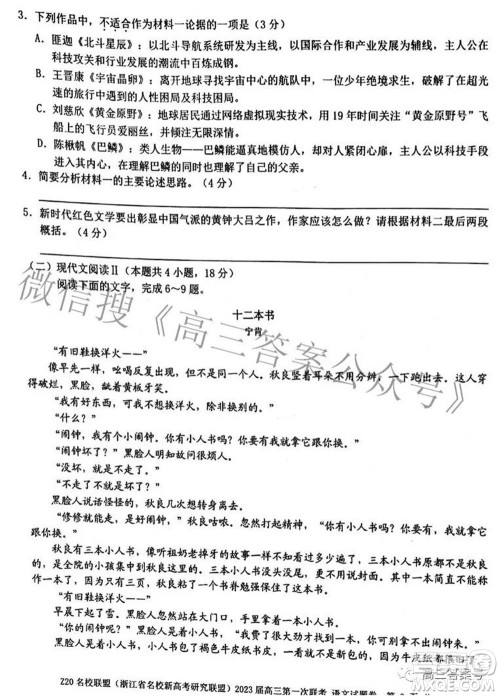 3．下列作品中，不适合作为材料一论据的一项是（3 分）
A．匪迦《北斗星辰》：以北斗导航系统研发为主线，以国际合作和产业发展为辅线，主人公在
科技攻关和行业发展的潮流中百炼成钢。
B．王晋康《宇宙晶卵》：离开地球寻找宇宙中心的航队中，一位少年绝境求生，破解了在超光
速的旅行中遇到的人性困局及科技困局。
C．刘慈欣《黄金原野》：地球居民通过网络虚拟现实技术，用 19 年时间关注“黄金原野号”飞
船上的飞行员爱丽丝，并倾注无限深情。
D．陈楸帆《巴鳞》：类人生物——巴鳞能逼真地模仿人，却对人紧闭心扉，主人公以科技手段
进入其内心，在理解巴鳞的同时也理解了自己的父亲。
4．简要分析材料一的主要论述思路。（4 分）
5．新时代红色文学要出彰显中国气派的黄钟大吕之作，作家应该怎么做？请根据材料二最后两段
概括。（4 分）
（二）现代文阅读Ⅱ（本题共 4 小题，18 分）
阅读下面的文字，完成 6～9 题。
十二本书
宁肯
“有旧鞋换洋火——”
像早先一样，吆喝反复出现，但不是同一个人。秋良竖着耳朵不用分辨，一下跑出去。这人穿
得破烂，黑脸，龇着黄板牙笑。
“我有好东西，可我不想换洋火，除非换别的。”
“什么？”
“闹钟，我有个小闹钟。你有小人书吗？你要有我就拿它跟你换。”
“闹钟坏了？”黑脸人明知故问很兴奋。
“没坏，就是不走了。”
“不走了不就是坏了？”
黑脸人说话怪怪的，秋良几次想解释转身回去。
“修修就能走，是好闹钟，”秋良咕哝。忽然提高了声音：“你有小人书吗？你要有，我就拿它
跟你换。”
秋良有三本小人书，像听祖奶老掉牙的故事一样不知看过多少遍了，三本小人书原都不是秋良
的，是全院的小孩集中到秋良这里的。三本小人书没头没尾，更不用说书皮，其中的一本简直不能称
作一本，因为只有三页，秋良粘了个书补勉强保住了这本书。
“有旧鞋换洋火——”
早晨下起了雪。黑脸人忽然站在大门口，手里拿着几本小人书。
“你的闹钟呢？”黑脸人一改怪样，叫秋良。
黑脸人晃着小人书，小人书包了褐色牛皮纸书皮，一点褐色牛皮纸
Z20 名校联盟（浙江省名校新高考研究联盟）2023 届高三第一次联考 语文试题卷
微信搜《高三答案公众号》
高三答案号